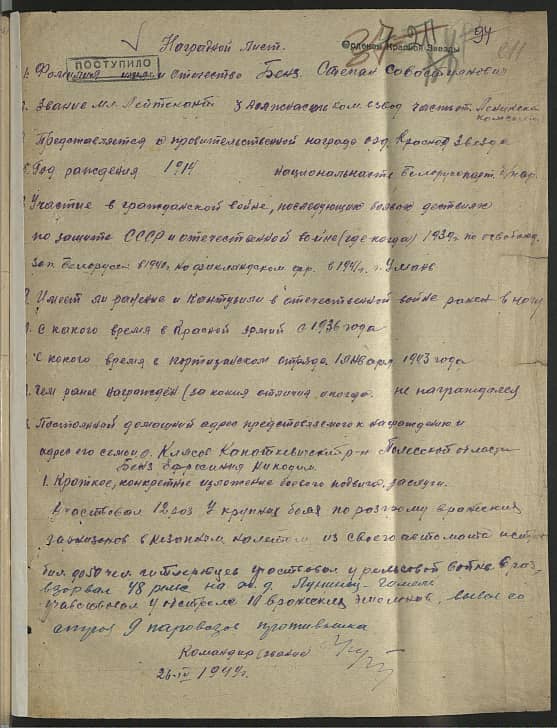 94
Наградной Лист.
Орденом Красной Звезды
ПОСТУПИЛО
Фамилия имя и отечество Бенз Степан Совостьянович
Звание мл. Лейтенант Занимаемая ком. взвод
Представляется к правительственной награде орд. Красная Звезда
Год рождения 1914 национальность Белорус
Участие в гражданской войне, последующих боевых действиях
по защите СССР и отечественной войне (где когда) 1939 г по освобожд.
зап. Белоруссии в 1940 на финляндском в 1941 г. г. Умань
Имеет ли ранение и контузии в отечественной войне ранен в ногу
С какого время в Красной армии с 1936 года
С какого время в партизанском отряде 1 января 1943 года
Чем ранее награжден (за какия отличия и когда. не награждался
Постоянной домашний адрес представляемого к награждению и
адрес его семьи д. Клясов Копаткевичский р-н Полесской области
Бенз Ефрасиния Никодим.
1. Краткое, конкретное изложение боевого подвига, заслуги.
Участвовал 12 раз в крупных боях по разгрому вражеских
гарнизонов из своего автомата
бил до 50 чел. гитлеровцев участвовал у рельсовой войне
взорвал 48 рельс на ж.д. Лунинец-Гомель
участвовал у обстреле 10 вражеских эшелонов, вывел со
строя 9 паровозов противника
Командир
1944 г.